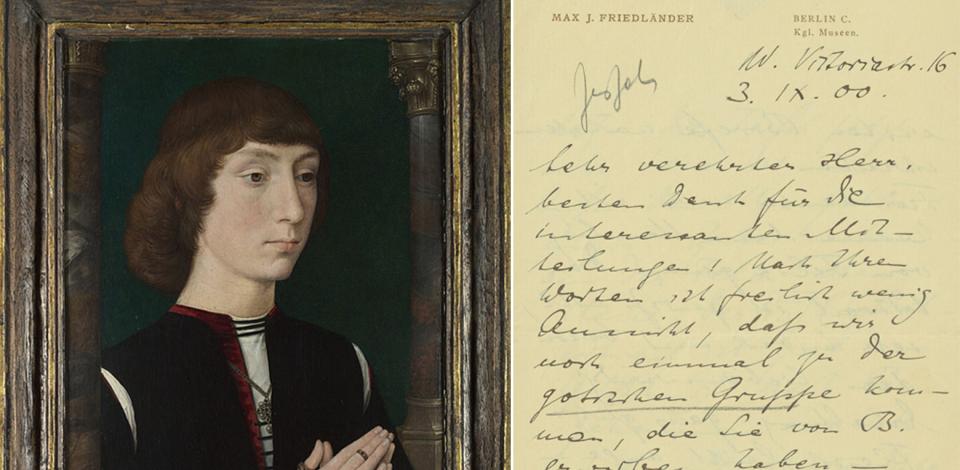 MAX J. FRIEDLÄNDER
BERLIN C.
Kgl. Museen.
W. Viktoriastr. 16
3. IX. 00.
Sehr verehrter Herr,
besten Dank für die
interessanten Mit-
teilungen! Nach Ihren
Worten ist freilich wenig
Aussicht, daß wir
noch einmal zu der
gotischen Gruppe kom-
men, die Sie von B.
erworben haben –